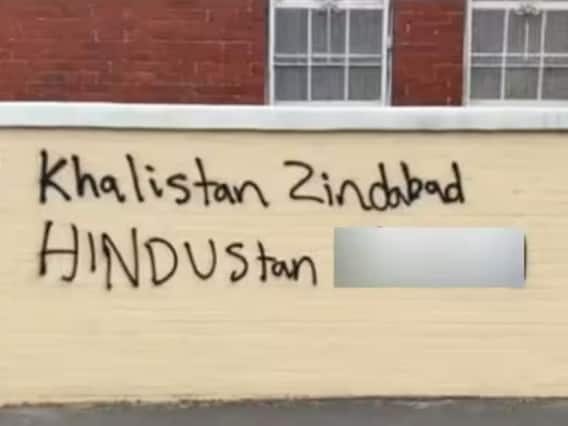 Khalistan Zindabad
HINDUStan